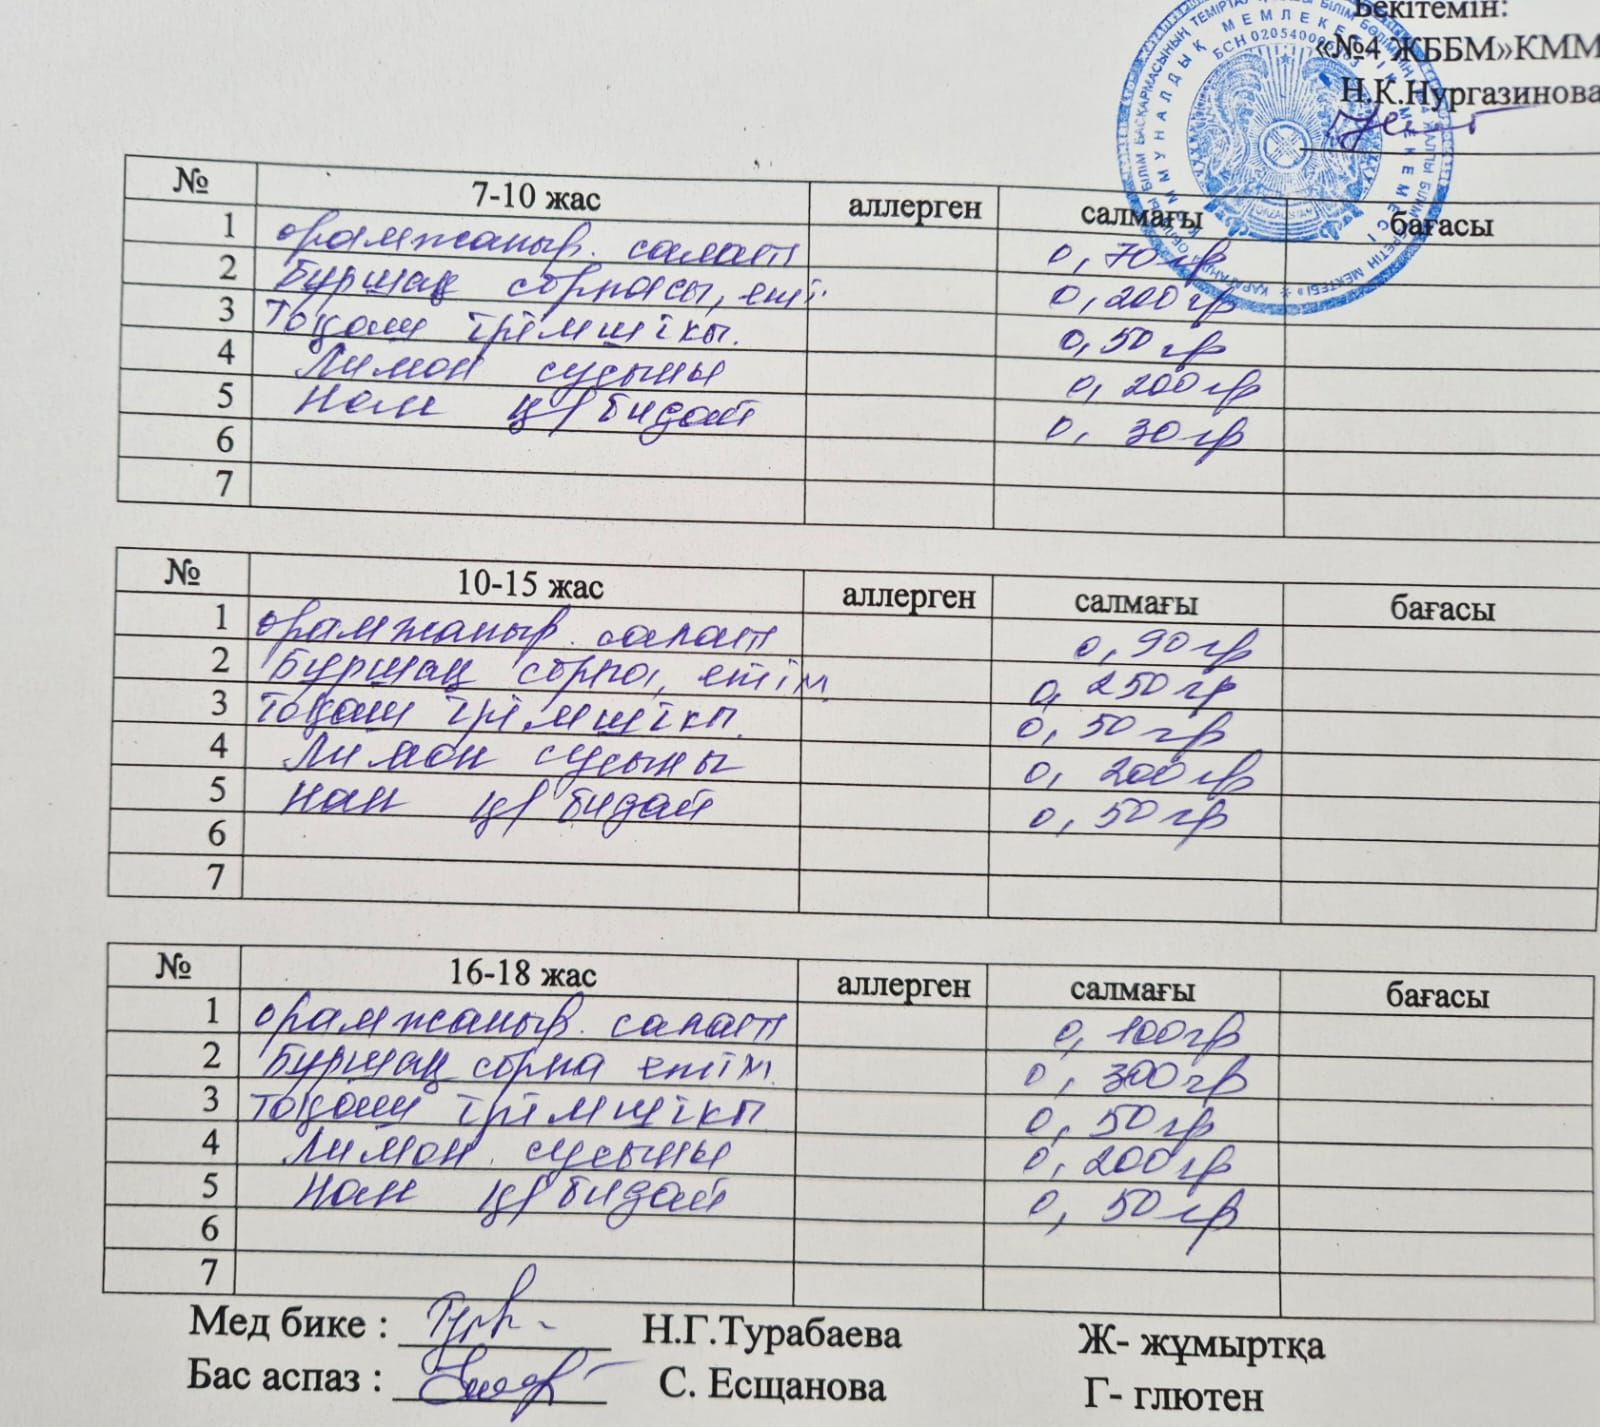 Бекітемін:
«№4 ЖББМ»КММ
Н.К.Нургазинова
№ 7-10 жас аллерген салмағы бағасы
1 орамжапыр. салат 0,70гр
2 Бұршақ сорпасы, еті. 0,200гр
3 Тоқаш ірімшікп. 0,50гр
4 Лимон сусыны 0,200гр
5 Нан қ/бидай 0,30гр
6
7
№ 10-15 жас аллерген салмағы бағасы
1 орамжапыр. салат 0,90гр
2 Бұршақ сорпа, етім 0,250гр
3 Тоқаш ірімшікп. 0,50гр
4 Лимон сусыны 0,200гр
5 Нан қ/бидай 0,50гр
6
7
№ 16-18 жас аллерген салмағы бағасы
1 орамжапыр. салат 0,100гр
2 Бұршақ сорпа етім 0,300гр
3 Тоқаш ірімшікп 0,50гр
4 Лимон сусыны 0,200гр
5 Нан қ/бидай 0,50гр
6
7
Мед бике : Н.Г.Турабаева Ж- жұмыртқа
Бас аспаз : С. Есщанова Г- глютен